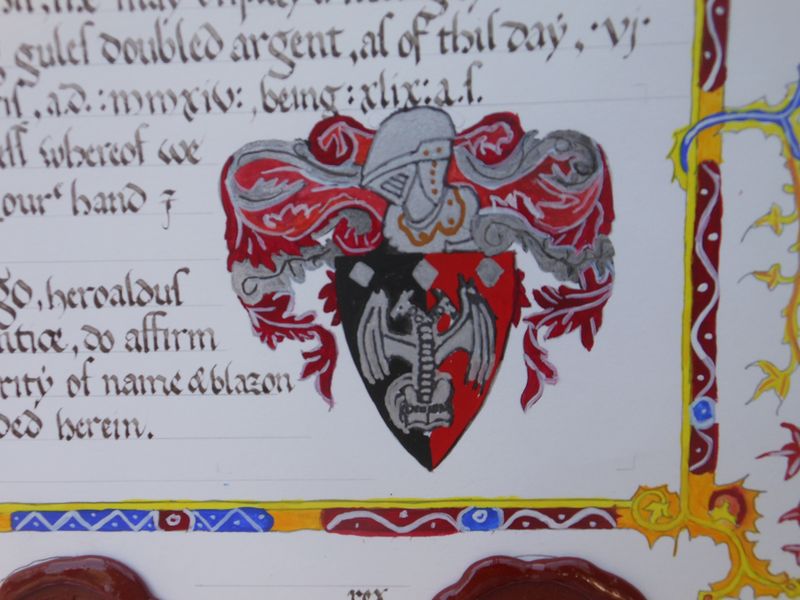 gules doubled argent, as of this day, ·vj·
, a.d. :mmxiv: , being :xlix: a.s.
whereof we
our hand
go, heroaldus
ntice, do affirm
rity of name & blazon
ded herein.
rex